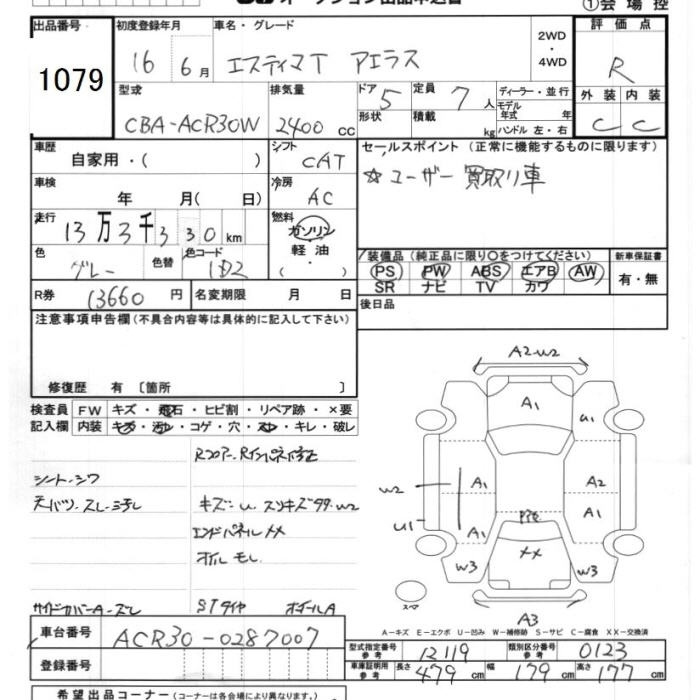 出品番号
初度登録年月
車名・グレード
2WD
・
4WD
評価点
1079
16 6月
エスティマT アエラス
R
型式
CBA-ACR30W
排気量
2400 cc
ドア 5
形状
定員 7 人
積載 kg
ディーラー・並行
モデル年式 年
ハンドル 左・右
外装 内装
C C
車歴
自家用・( )
シフト
CAT
セールスポイント (正常に機能するものに限ります)
☆ユーザー買取り車
車検
年 月( 日)
冷房
AC
走行
13万3千330km
燃料
ガソリン
軽油
( ・ )
色
グレー
色替
色コード
1D2
装備品 (純正品に限り○をつけてください)
新車保証書
PS PW ABS エアB AW
SR ナビ TV カワ
有・無
R券 13660 円
名変期限 月 日
後日品
注意事項申告欄(不具合内容等は具体的に記入して下さい)
修復歴 有 [箇所 ]
検査員 記入欄
FW キズ・飛石・ヒビ割・リペア跡・×要
内装 キズ・汚レ・コゲ・穴・スレ・キレ・破レ
シート・シワ
キズ=u スリキズ多々w2
エンドパネルXX
オイルモレ
サイドカバーA・ズレ
STタイヤ ホイールA
A2・w2
A1
u1
w2
A1
A2
u1
A1
A1
w3
XX
w3
スペア
A3
A-キズ E-エクボ U-凹み W-補修跡 S-サビ C-腐食 XX-交換済
車台番号
ACR30-0287007
登録番号
型式指定番号 参考
12119
類別区分番号 参考
0123
車庫証明用 参考
長さ 479cm 幅 179cm 高さ 177cm
希望出品コーナー (コーナーは各会場により異なります。)